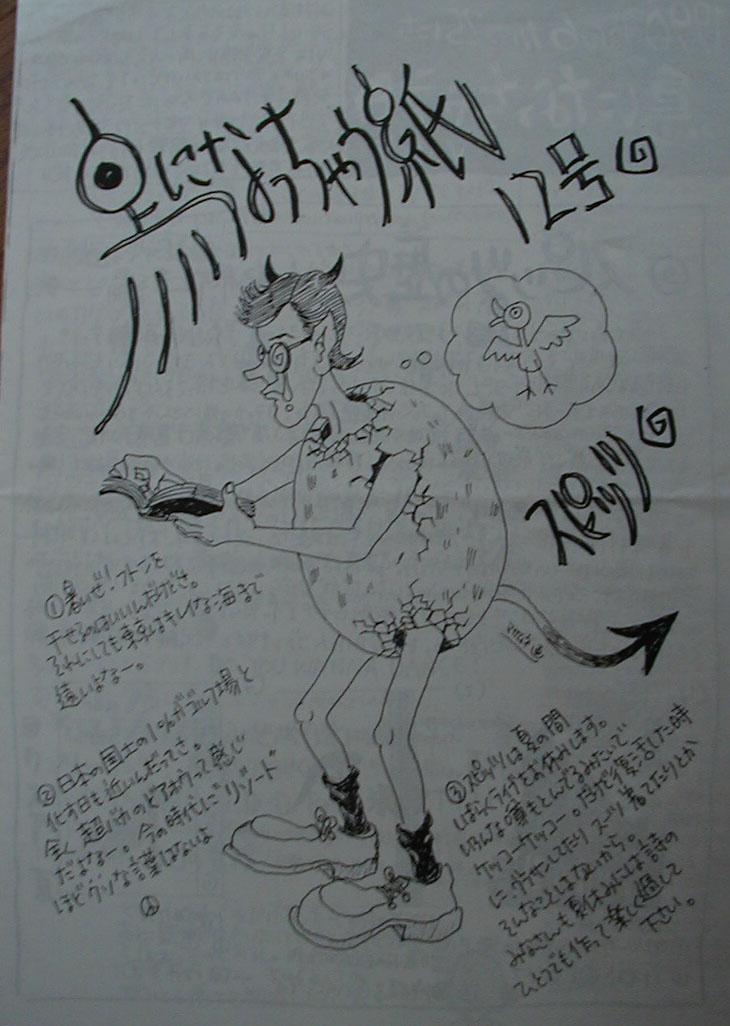 鳥になっちゃう紙
12号
スピッツ
①暑いぜ!フトンを
干せるのはいいんだけどさ。
それにしても東京はキレイな海まで
遠いよなー。
②日本の国土の1%がゴルフ場と
化す日も近いんだってさ。
全く超バカのどアホウって感じ
だよなー。今の時代に"リゾート"
ほどクソな言葉はないよ
③スピッツは夏の間
しばらくライブをお休みします。
いろんな噂もとんでるみたいで
ケッコーケッコー。だが復活した時
に、グラサンしてたりスーツ着てたりとか
そんなことはないから。
みなさんも夏休みには詩の
ひとつでも作って楽しく過して
下さい。